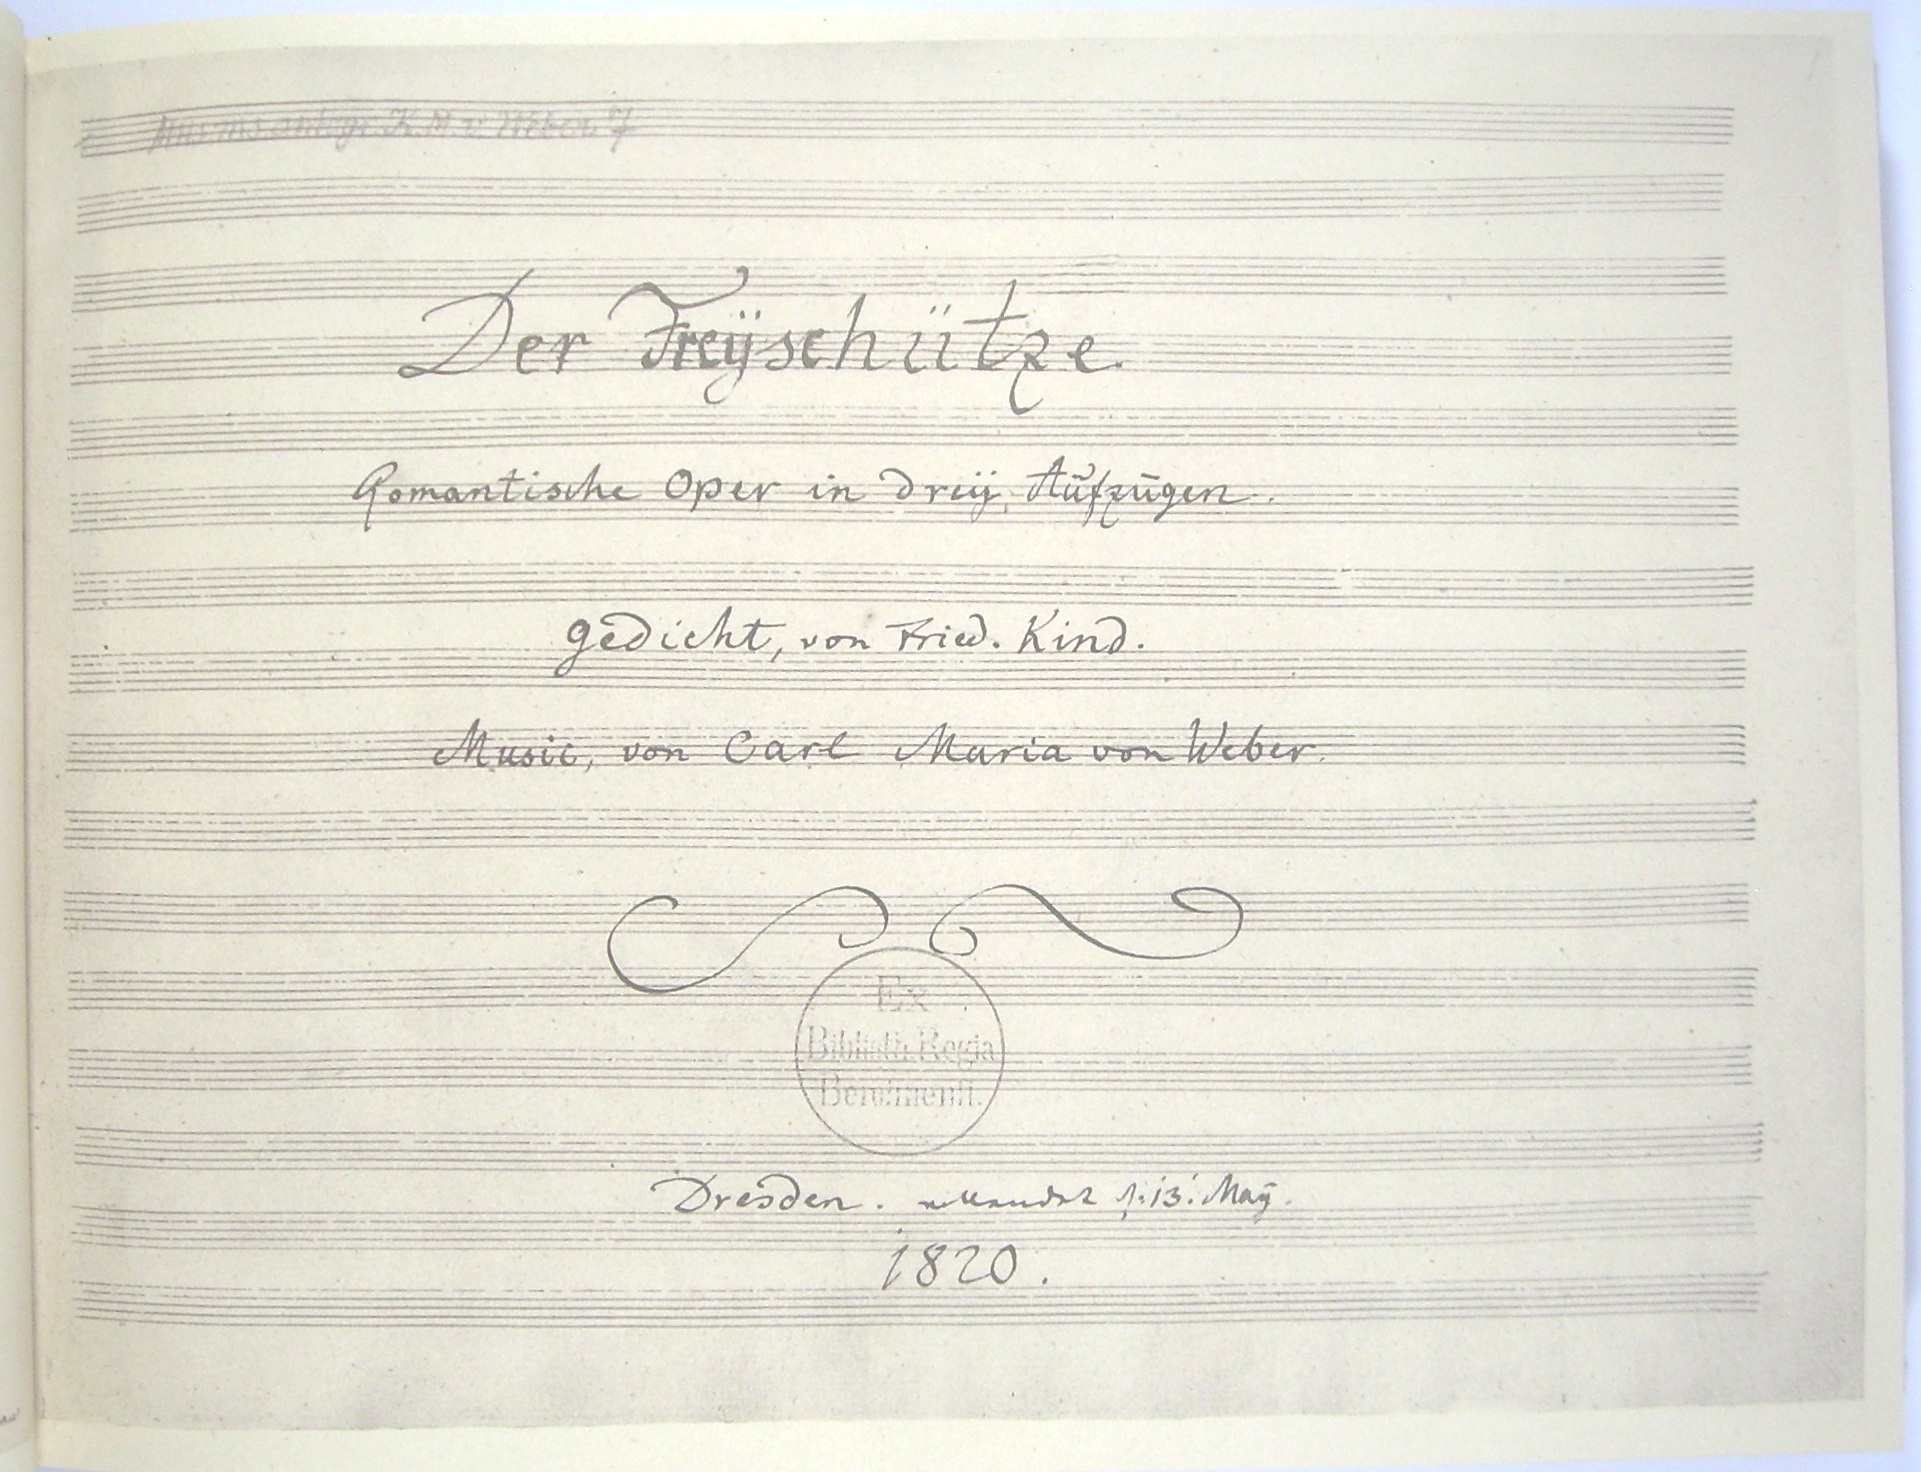 Mus. ms. autogr. K. M. v. Weber 7
Der Freÿschütze.
Romantische Oper in dreÿ Aufzügen.
gedicht, von Fried. Kind.
Music, von Carl Maria von Weber.
Ex
Biblioth. Regia
Berolinensi.
Dresden. vollendet d: 13: Maÿ.
1820.